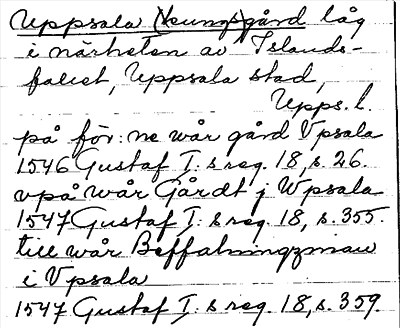 Uppsala (kungs)gård låg
i närheten av Islands-
fallet, Uppsala stad,
Upps. l.
på för: ne wår gård Vpsala
1546 Gustaf I: s reg. 18, s. 26.
vpå wår Gårdt j Wpsala
1547 Gustaf I: s reg. 18, s. 355.
till wår Beffalningzman
i Vpsala
1547 Gustaf I: s reg. 18, s. 359.